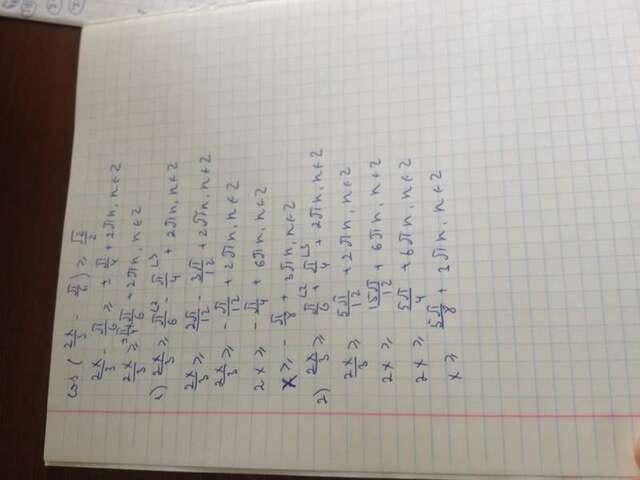 cos(2x/3 - π/6) ≥ √2/2
2x/3 - π/6 ≥ ± π/4 + 2πn, n∈Z
2x/3 ≥ ±π/4 + π/6 + 2πn, n∈Z
1) 2x/3 ≥ π/6 - π/4 + 2πn, n∈Z
2x/3 ≥ 2π/12 - 3π/12 + 2πn, n∈Z
2x/3 ≥ - π/12 + 2πn, n∈Z
2x ≥ - π/4 + 6πn, n∈Z
x ≥ - π/8 + 3πn, n∈Z
2) 2x/3 ≥ π/6 + π/4 + 2πn, n∈Z
2x/3 ≥ 5π/12 + 2πn, n∈Z
2x ≥ 15π/12 + 6πn, n∈Z
2x ≥ 5π/4 + 6πn, n∈Z
x ≥ 5π/8 + 3πn, n∈Z